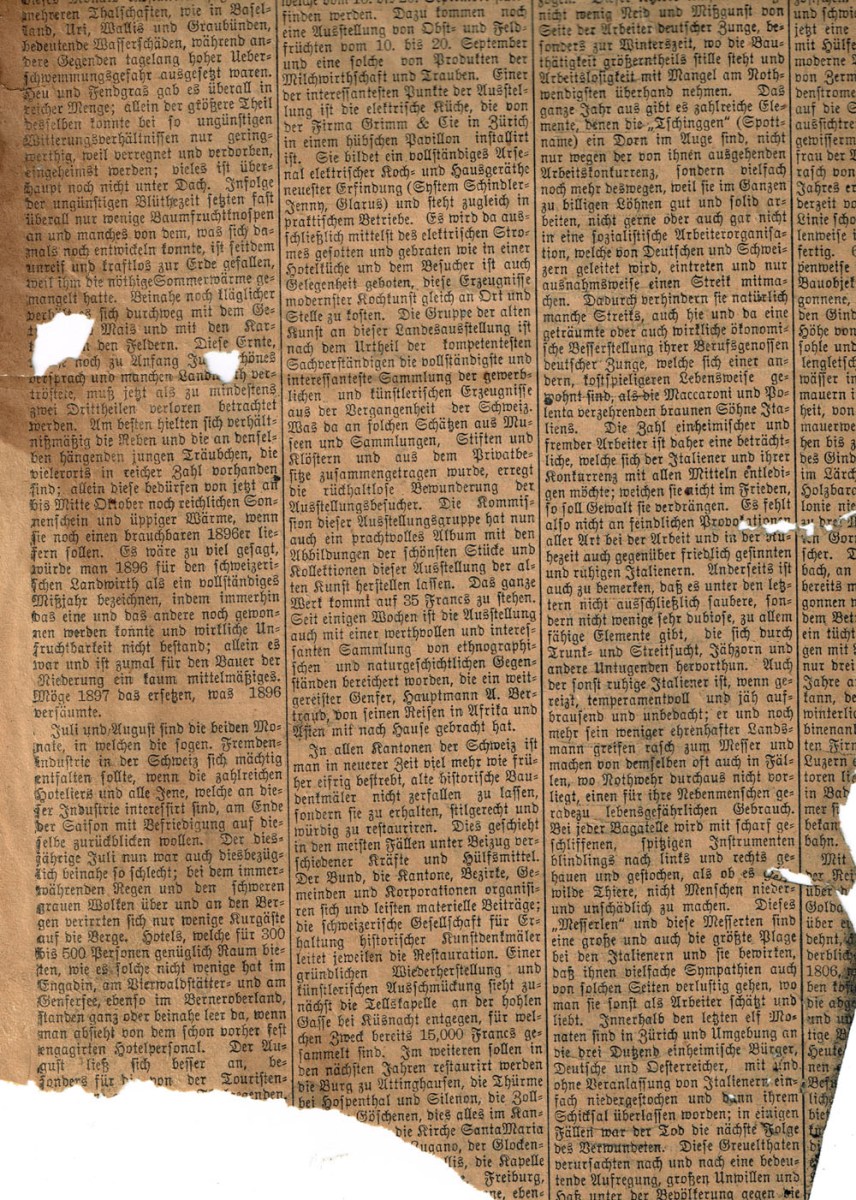 mehreren Thalschaften, wie in Basel-
land, Uri, Wallis und Graubünden,
bedeutende Wasserschäden, während an-
dere Gegenden tagelang hoher Ueber-
schwemmungsgefahr ausgesetzt waren.
Heu und Fendgras gab es überall in
reicher Menge; allein der größere Theil
desselben konnte bei so ungünstigen
Witterungsverhältnissen nur gering-
werthig, weil verregnet und verdorben,
eingeheimst werden; vieles ist über-
haupt noch nicht unter Dach. Infolge
der ungünstigen Blüthezeit setzten fast
überall nur wenige Baumfruchtknospen
an und manches von dem, was sich da-
mals noch entwickeln konnte, ist seitdem
unreif und kraftlos zur Erde gefallen,
weil ihm die nöthige Sommerwärme ge-
mangelt hatte. Beinahe noch kläglicher
sich durchweg mit dem Ge-
Mais und mit den Kar-
den Feldern. Diese Ernte,
noch zu Anfang schönes
versprach und manchen
tröstete, muß jetzt als zu mindestens
zwei Drittheilen verloren betrachtet
werden. Am besten hielten sich verhält-
nißmäßig die Reben und die an densel-
ben hängenden jungen Träubchen, die
vielerorts in reicher Zahl vorhanden
sind; allein diese bedürfen von jetzt an
bis Mitte Oktober noch reichlichen Son-
nenschein und üppiger Wärme, wenn
sie noch einen brauchbaren 1896er lie-
fern sollen. Es wäre zu viel gesagt,
würde man 1896 für den schweizeri-
schen Landwirth als ein vollständiges
Mißjahr bezeichnen, indem immerhin
das eine und das andere noch gewon-
nen werden konnte und wirkliche Un-
fruchtbarkeit nicht bestand; allein es
war und ist zumal für den Bauer der
Niederung ein kaum mittelmäßiges.
Möge 1897 das ersetzen, was 1896
versäumte.
Juli und August sind die beiden Mo-
nate, in welchen die sogen. Fremden-
Industrie in der Schweiz sich mächtig
entfalten sollte, wenn die zahlreichen
Hoteliers und alle Jene, welche an die-
ser Industrie interessirt sind, am Ende
der Saison mit Befriedigung auf die-
selbe zurückblicken wollen. Der dies-
jährige Juli nun war auch diesbezüg-
lich beinahe so schlecht; bei dem immer-
währenden Regen und den schweren
grauen Wolken über und an den Ber-
gen verirrten sich nur wenige Kurgäste
auf die Berge. Hotels, welche für 300
bis 500 Personen genüglich Raum bie-
ten, wie es solche nicht wenige hat im
Engadin, am Vierwaldstätter- und am
Genfersee, ebenso im Berneroberland,
standen ganz oder beinahe leer da, wenn
man absieht von dem schon vorher fest
engagirten Hotelpersonal. Der Au-
gust ließ sich besser an, be-
sonders für von der Touristen-
finden werden. Dazu kommen noch
eine Ausstellung von Obst- und Feld-
früchten vom 10. bis 20. September
und eine solche von Produkten der
Milchwirthschaft und Trauben. Einer
der interessantesten Punkte der Ausstel-
lung ist die elektrische Küche, die von
der Firma Grimm & Cie in Zürich
in einem hübschen Pavillon installirt
ist. Sie bildet ein vollständiges Arse-
nal elektrischer Koch- und Hausgeräthe
neuester Erfindung (System Schindler-
Jenny, Glarus) und steht zugleich in
praktischem Betriebe. Es wird da aus-
schließlich mittelst des elektrischen Stro-
mes gesotten und gebraten wie in einer
Hotelküche und dem Besucher ist auch
Gelegenheit geboten, diese Erzeugnisse
modernster Kochkunst gleich an Ort und
Stelle zu kosten. Die Gruppe der alten
Kunst an dieser Landesausstellung ist
nach dem Urtheil der kompetentesten
Sachverständigen die vollständigste und
interessanteste Sammlung der gewerb-
lichen und künstlerischen Erzeugnisse
aus der Vergangenheit der Schweiz.
Was da an solchen Schätzen aus Mu-
seen und Sammlungen, Stiften und
Klöstern und aus dem Privatbe-
sitze zusammengetragen wurde, erregt
die rückhaltlose Bewunderung der
Ausstellungsbesucher. Die Kommis-
sion dieser Ausstellungsgruppe hat nun
auch ein prachtvolles Album mit den
Abbildungen der schönsten Stücke und
Kollektionen dieser Ausstellung der al-
ten Kunst herstellen lassen. Das ganze
Werk kommt auf 35 Francs zu stehen.
Seit einigen Wochen ist die Ausstellung
auch mit einer werthvollen und interes-
santen Sammlung von ethnographi-
schen und naturgeschichtlichen Gegen-
ständen bereichert worden, die ein weit-
gereister Genfer, Hauptmann A. Ber-
traud, von seinen Reisen in Afrika und
Asien mit nach Hause gebracht hat.
In allen Kantonen der Schweiz ist
man in neuerer Zeit viel mehr wie frü-
her eifrig bestrebt, alte historische Bau-
denkmäler nicht zerfallen zu lassen,
sondern sie zu erhalten, stilgerecht und
würdig zu restauriren. Dies geschieht
in den meisten Fällen unter Beizug ver-
schiedener Kräfte und Hülfsmittel.
Der Bund, die Kantone, Bezirke, Ge-
meinden und Korporationen organisi-
ren sich und leisten materielle Beiträge;
die schweizerische Gesellschaft für Er-
haltung historischer Kunstdenkmäler
leitet jeweilen die Restauration. Einer
gründlichen Wiederherstellung und
künstlerischen Ausschmückung sieht zu-
nächst die Tellskapelle an der hohlen
Gasse bei Küsnacht entgegen, für wel-
chen Zweck bereits 15,000 Francs ge-
sammelt sind. Im weiteren sollen in
den nächsten Jahren restaurirt werden
die Burg zu Attinghausen, die Thürme
bei Hospenthal und Silenon, die Zoll-
Göschenen, dies alles im Kan-
die Kirche Santa Maria
Lugano, der Glocken-
die Kapelle
Freiburg,
eben-
nicht wenig Neid und Mißgunst von
Seite der Arbeiter deutscher Zunge, be-
sonders zur Winterszeit, wo die Bau-
thätigkeit größerntheils stille steht und
Arbeitslosigkeit mit Mangel am Noth-
wendigsten überhand nehmen. Das
ganze Jahr aus gibt es zahlreiche Ele-
mente, denen die „Tschinggen" (Spott-
name) ein Dorn im Auge sind, nicht
nur wegen der von ihnen ausgehenden
Arbeitskonkurrenz, sondern vielfach
noch mehr deswegen, weil sie im Ganzen
zu billigen Löhnen gut und solid ar-
beiten, nicht gerne oder auch gar nicht
in eine sozialistische Arbeiterorganisa-
tion, welche von Deutschen und Schwei-
zern geleitet wird, eintreten und nur
ausnahmsweise einen Streik mitma-
chen. Dadurch verhindern sie natürlich
manche Streiks, auch hie und da eine
geträumte oder auch wirkliche ökonomi-
sche Besserstellung ihrer Berufsgenossen
deutscher Zunge, welche sich einer an-
dern, kostspieligeren Lebensweise ge-
wohnt sind, als die Maccaroni und Po-
lenta verzehrenden braunen Söhne Ita-
liens. Die Zahl einheimischer und
fremder Arbeiter ist daher eine beträcht-
liche, welche sich der Italiener und ihrer
Konkurrenz mit allen Mitteln entledi-
gen möchte; weichen sie nicht im Frieden,
so soll Gewalt sie verdrängen. Es fehlt
also nicht an feindlichen Provokationen
aller Art bei der Arbeit und in der Ru-
hezeit auch gegenüber friedlich gesinnten
und ruhigen Italienern. Anderseits ist
auch zu bemerken, daß es unter den letz-
tern nicht ausschließlich saubere, son-
dern nicht wenige sehr dubiose, zu allem
fähige Elemente gibt, die sich durch
Trunk- und Streitsucht, Jähzorn und
andere Untugenden hervorthun. Auch
der sonst ruhige Italiener ist, wenn ge-
reizt, temperamentvoll und jäh auf-
brausend und unbedacht; er und noch
mehr sein weniger ehrenhafter Lands-
mann greifen rasch zum Messer und
machen von demselben oft auch in Fäl-
len, wo Nothwehr durchaus nicht vor-
liegt, einen für ihre Nebenmenschen ge-
radezu lebensgefährlichen Gebrauch.
Bei jeder Bagatelle wird mit scharf ge-
schliffenen, spitzigen Instrumenten
blindlings nach links und rechts ge-
hauen und gestochen, als ob es
wilde Thiere, nicht Menschen nieder-
und unschädlich zu machen. Dieses
„Messerlen" und diese Messerten sind
eine große und auch die größte Plage
bei den Italienern und sie bewirken,
daß ihnen vielfache Sympathien auch
von solchen Seiten verlustig gehen, wo
man sie sonst als Arbeiter schätzt und
liebt. Innerhalb den letzten elf Mo-
naten sind in Zürich und Umgebung an
die drei Dutzend einheimische Bürger,
Deutsche und Oesterreicher, mit und
ohne Veranlassung von Italienern ein-
fach niedergestochen und dann ihrem
Schicksal überlassen worden; in einigen
Fällen war der Tod die nächste Folge
des Verwundeten. Diese Greuelthaten
verursachten nach und nach eine bedeu-
tende Aufregung, großen Unwillen und
Haß unter der Bevölkerung gegen die
jetzt eine
mit Hülfe
moderne
von Zerm
denstrome
auf die S
aussichtrei
gewisserm
frau der
rasch von
Jahres er
derzeit vo
Linie scho
lenweise i
fertig. S
penweise
Bauobjek
gonnene,
den Gind
Höhe von
sohle und
lengletsch
wässer in
mauern i
heit, von
mauerwe
hen bis z
des Gind
im Lärch
Holzbara
lonie nie
von Gor
scher. T
bach, an
bereits m
gonnen n
dem Beti
ein tücht
gen mit
nur drei
Jahre a
kann, de
winterlic
binenanl
ten Firm
Luzern e
toren lie
in Bad
mer si
bekan
bahn.
Mit
der Rei
über
Golda
über e
dehnt,
derblich
1806,
ben kost
die abge
und un
tige B
Heute
nen
lich
bis